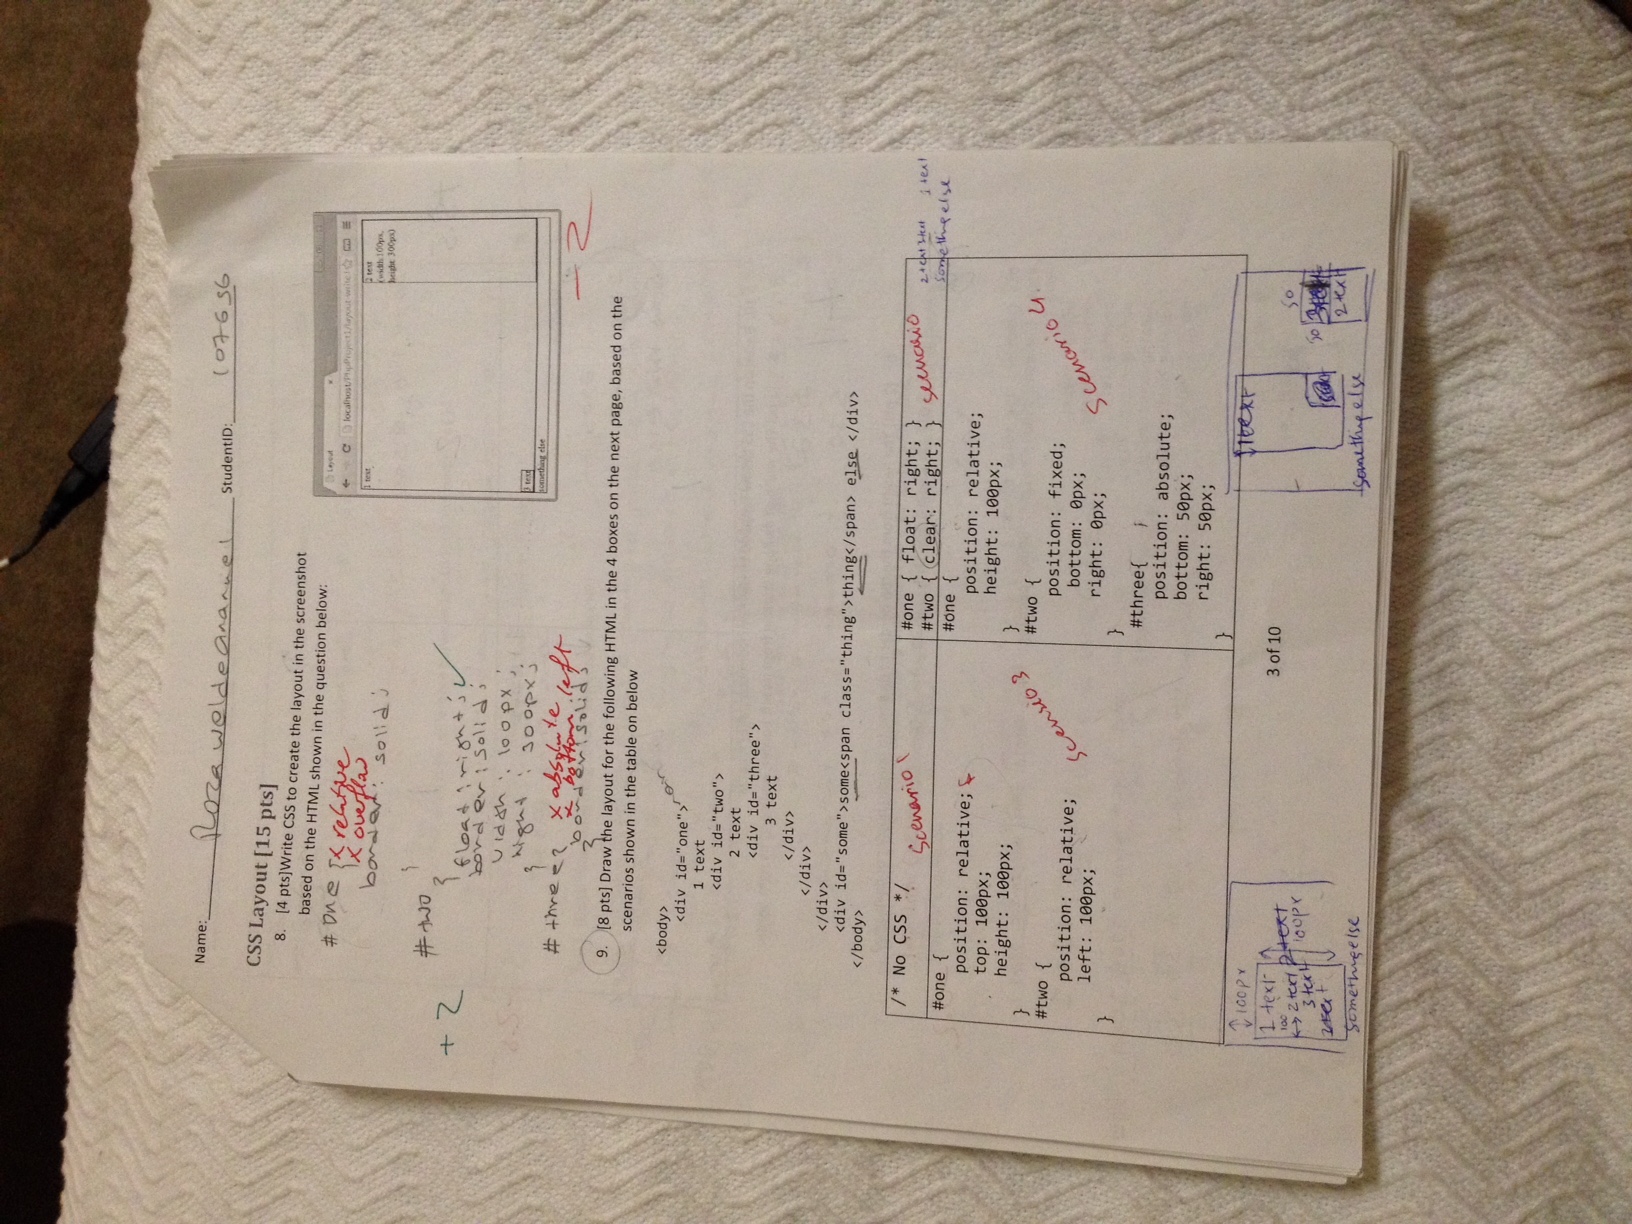 Name: Roza weldeananuel StudentID: 107636
CSS Layout [15 pts]
8. [4 pts]Write CSS to create the layout in the screenshot
based on the HTML shown in the question below:
# One {
x relative
x overflow
border: solid;
}
# two
{
float: right; ✓
border: solid;
width: 100px;
hight: 300px;
}
+2
# three {
x absolute
x bottom. left
border: solid;
}
Layout
localhost/PhpProject1/layout-write
1 text
2 text
(width:100px,
height: 300px)
3 text
something else
-2
9. [8 pts] Draw the layout for the following HTML in the 4 boxes on the next page, based on the
scenarios shown in the table on below
<body>
<div id="one">
1 text
<div id="two">
2 text
<div id="three">
3 text
</div>
</div>
</div>
<div id="some">some<span class="thing">thing</span> else </div>
</body>
/* No CSS */
Scenario 1
#one { float: right; }
#two { clear: right; }
scenario
2 text 3 text 1 text
something else
#one {
position: relative;
top: 100px;
height: 100px;
}
#two {
position: relative;
left: 100px;
}
Scenario 3
#one {
position: relative;
height: 100px;
}
#two {
position: fixed;
bottom: 0px;
right: 0px;
}
#three{
position: absolute;
bottom: 50px;
right: 50px;
}
Scenario 4
100px
1 text
100
2 text
2 text
3 text
100px
2 text
something else
3 of 10
1 text
50
50
2 text
something else